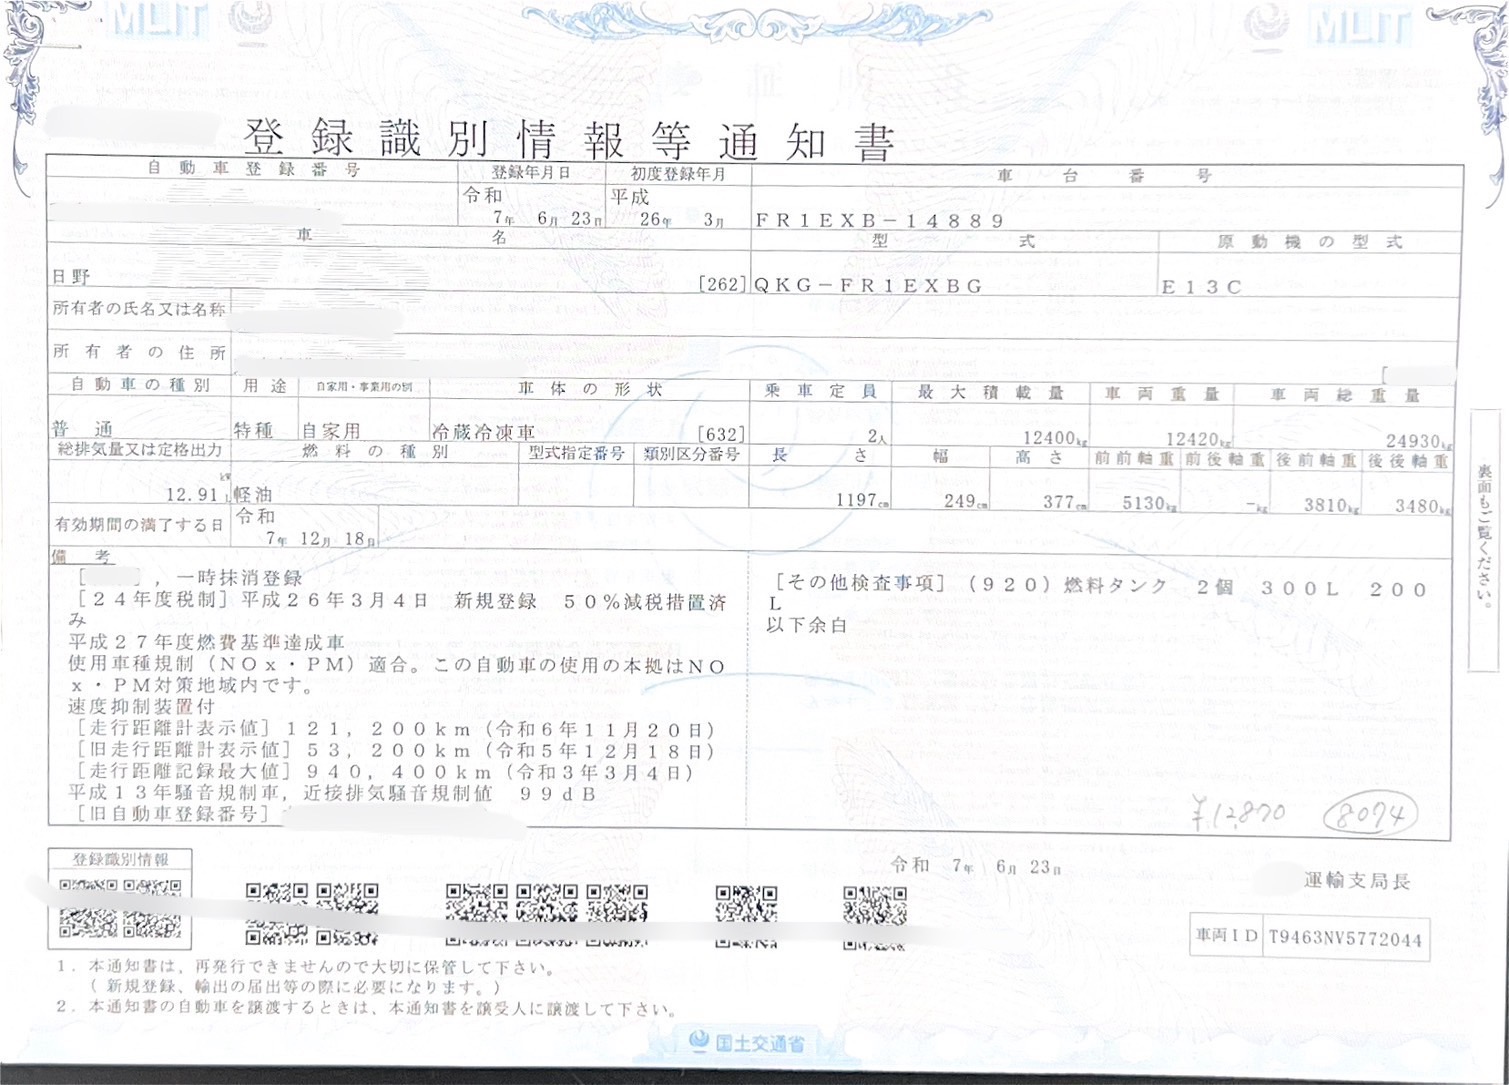 MLIT
MLIT
登録識別情報等通知書
自動車登録番号 登録年月日 初度登録年月 車台番号
令和 平成
7年 6月 23日 26年 3月 FR1EXB-14889
車名 型式 原動機の型式
日野 [262] QKG-FR1EXBG E13C
所有者の氏名又は名称
所有者の住所
自動車の種別 用途 自家用・事業用の別 車体の形状 乗車定員 最大積載量 車両重量 車両総重量
普通 特種 自家用 冷蔵冷凍車 [632] 2人 12400kg 12420kg 24930kg
総排気量又は定格出力 燃料の種別 型式指定番号 類別区分番号 長さ 幅 高さ 前前軸重 前後軸重 後前軸重 後後軸重
kW
12.91 L 軽油 1197cm 249cm 377cm 5130kg -kg 3810kg 3480kg
有効期間の満了する日 令和
7年 12月 18日
備考
[ ],一時抹消登録
[24年度税制]平成26年3月4日 新規登録 50%減税措置済
み
平成27年度燃費基準達成車
使用車種規制(NOx・PM)適合。この自動車の使用の本拠はNO
x・PM対策地域内です。
速度抑制装置付
[走行距離計表示値]121,200km(令和6年11月20日)
[旧走行距離計表示値]53,200km(令和5年12月18日)
[走行距離記録最大値]940,400km(令和3年3月4日)
平成13年騒音規制車,近接排気騒音規制値 99dB
[旧自動車登録番号]
[その他検査事項](920)燃料タンク 2個 300L 200
L
以下余白
¥12,870 8074
裏面もご覧ください。
登録識別情報
令和 7年 6月 23日
運輸支局長
車両ID T9463NV5772044
1.本通知書は、再発行できませんので大切に保管して下さい。
(新規登録、輸出の届出等の際に必要になります。)
2.本通知書の自動車を譲渡するときは、本通知書を譲受人に譲渡して下さい。
国土交通省